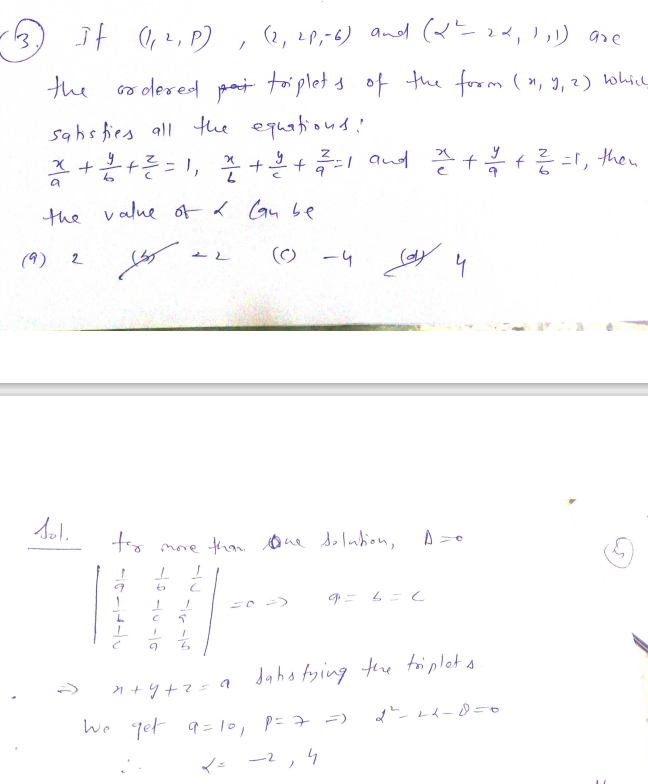 (3.) If (1, 2, P) , (2, 2P, -6) and (α² - 2α, 1, 1) are
the ordered triplets of the form (x, y, z) which
satisfies all the equations:
x/a + y/b + z/c = 1, x/b + y/c + z/a = 1 and x/c + y/a + z/b = 1, then
the value of α can be
(a) 2 (b) -2 (c) -4 (d) 4
Sol. For more than one solution, Δ = 0
| 1/a 1/b 1/c |
| 1/b 1/c 1/a | = 0 => a = b = c
| 1/c 1/a 1/b |
=> x + y + z = a satisfying the triplets
We get a = 10, P = 7 => α² - 2α - 8 = 0
∴ α = -2, 4